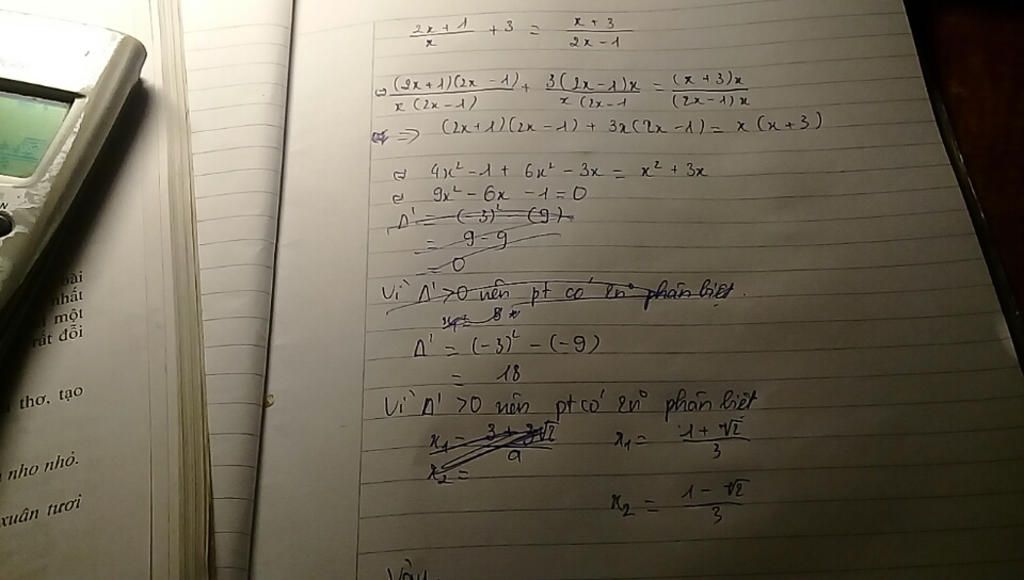 (2x+1)/x + 3 = (x+3)/(2x-1)
⇔ (2x+1)(2x-1)/x(2x-1) + 3(2x-1)x/x(2x-1 = (x+3)x/(2x-1)x
=> (2x+1)(2x-1) + 3x(2x-1) = x(x+3)
⇔ 4x² - 1 + 6x² - 3x = x² + 3x
⇔ 9x² - 6x - 1 = 0
Δ' = (-3)² - (9)
= 9 - 9
= 0
Vì Δ' > 0 nên pt có 2n° phân biệt.
Δ' = (-3)² - (-9)
= 18
Vì Δ' > 0 nên pt có 2n° phân biệt
x₁ = (3 + 3√2)/9
x₂ =
x₁ = (1 + √2)/3
x₂ = (1 - √2)/3
Vậy
bài
nhất
một
rất đỗi
thơ, tạo
nho nhỏ.
xuân tươi